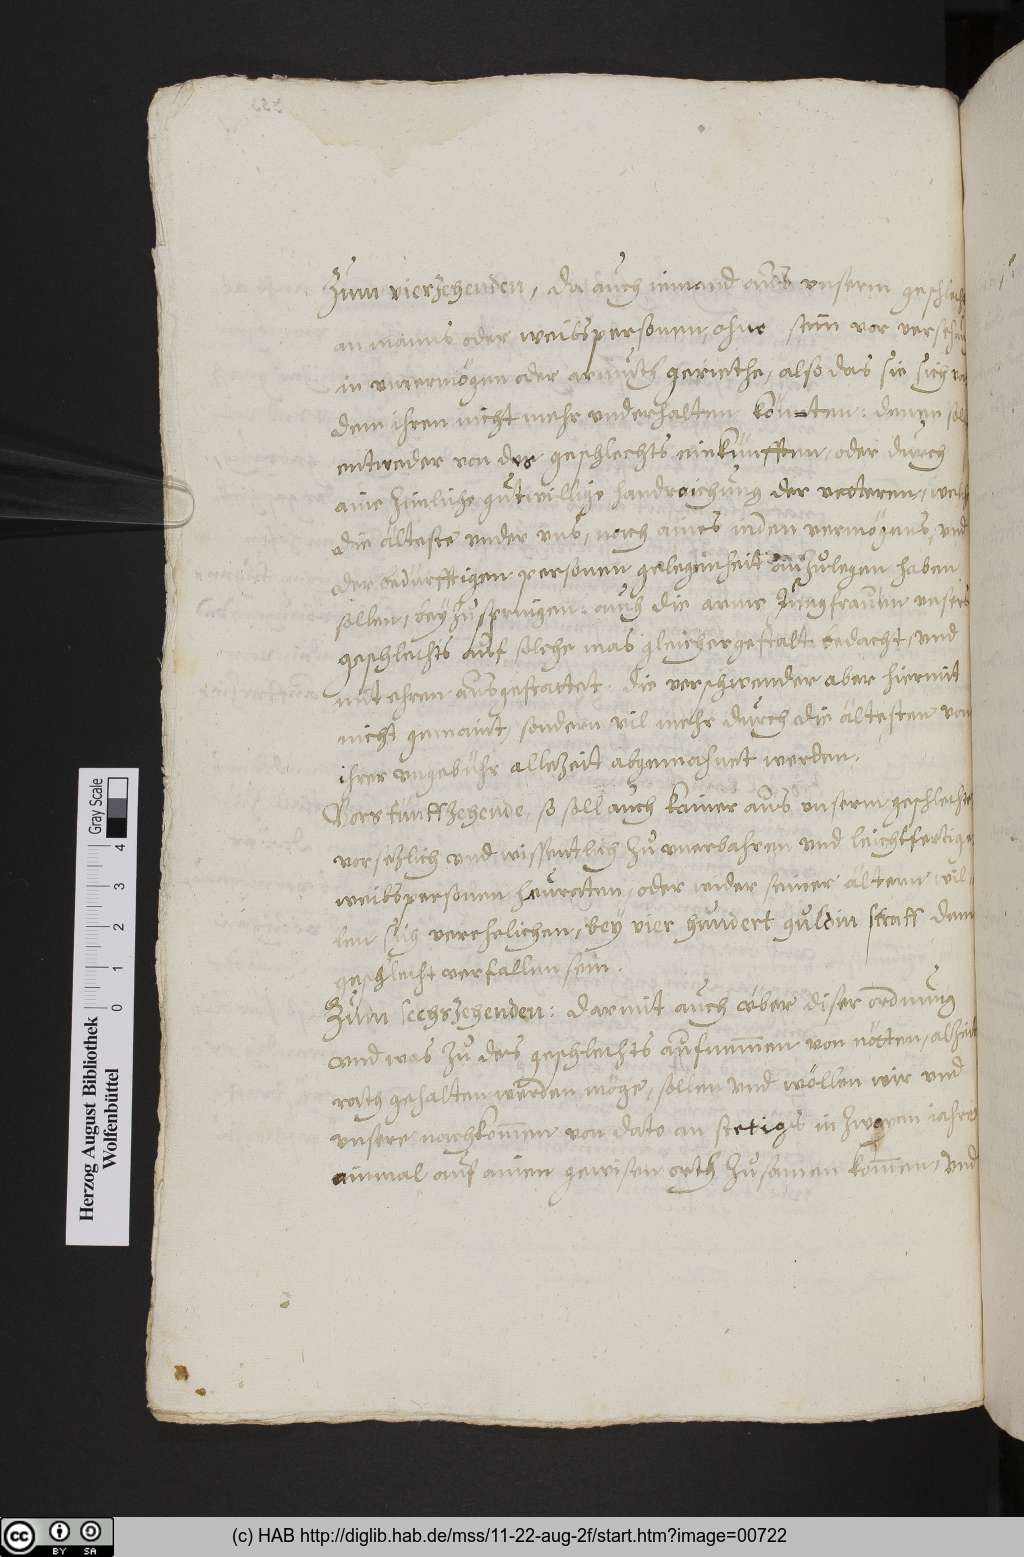 Zum vierzehenden, da auch iemand aus unserm geschlecht
an manns oder weibspersonen, ohne sein vor versehen
in unvermögen oder armuth geriethe, also das sie sich von
dem ihren nicht mehr underhalten könten: denen soll
entweder von des geschlechts einkünfften, oder durch
eine zimliche gutwillige handreichung der vetteren, welche
die älteste under uns, nach aines ieden vermögens, und
der bedürfftigen personen gelegenheit anzulegen haben
sollen, beyzuspringen: auch die arme Jungfrawen unsers
geschlechts auf solche mas gleichergestalt bedacht, und
mit ehren ausgestattet. die verschwender aber hiermit
nicht gemaint, sondern vil mehr durch die ältesten von
ihrer ungebühr allezeit abgemahnet werden.
Vors funffzehende, so soll auch kainer aus unserm geschlechte
vorsetzlich und wissentlich zu unerbahren und leichtfertigen
weibspersonen heuraten, oder wider seiner ältern wil-
len sich verehelichen, bey vier hundert gulden straff dem
geschlecht verfallen sein.
Zum sechszehenden: darmit auch über diser ordnung
und was zu des geschlechts aufnemmen von nötten,
rath gehalten werden möge, sollen und wöllen wir und
unsere nachkommen von dato an stetigs in zweyen iahren
einmal auf ainen gewisen orth zusamen kommen, und
Herzog August Bibliothek
Wolfenbüttel
Gray Scale
0 1 2 3 4
CC BY SA
(c) HAB http://diglib.hab.de/mss/11-22-aug-2f/start.htm?image=00722